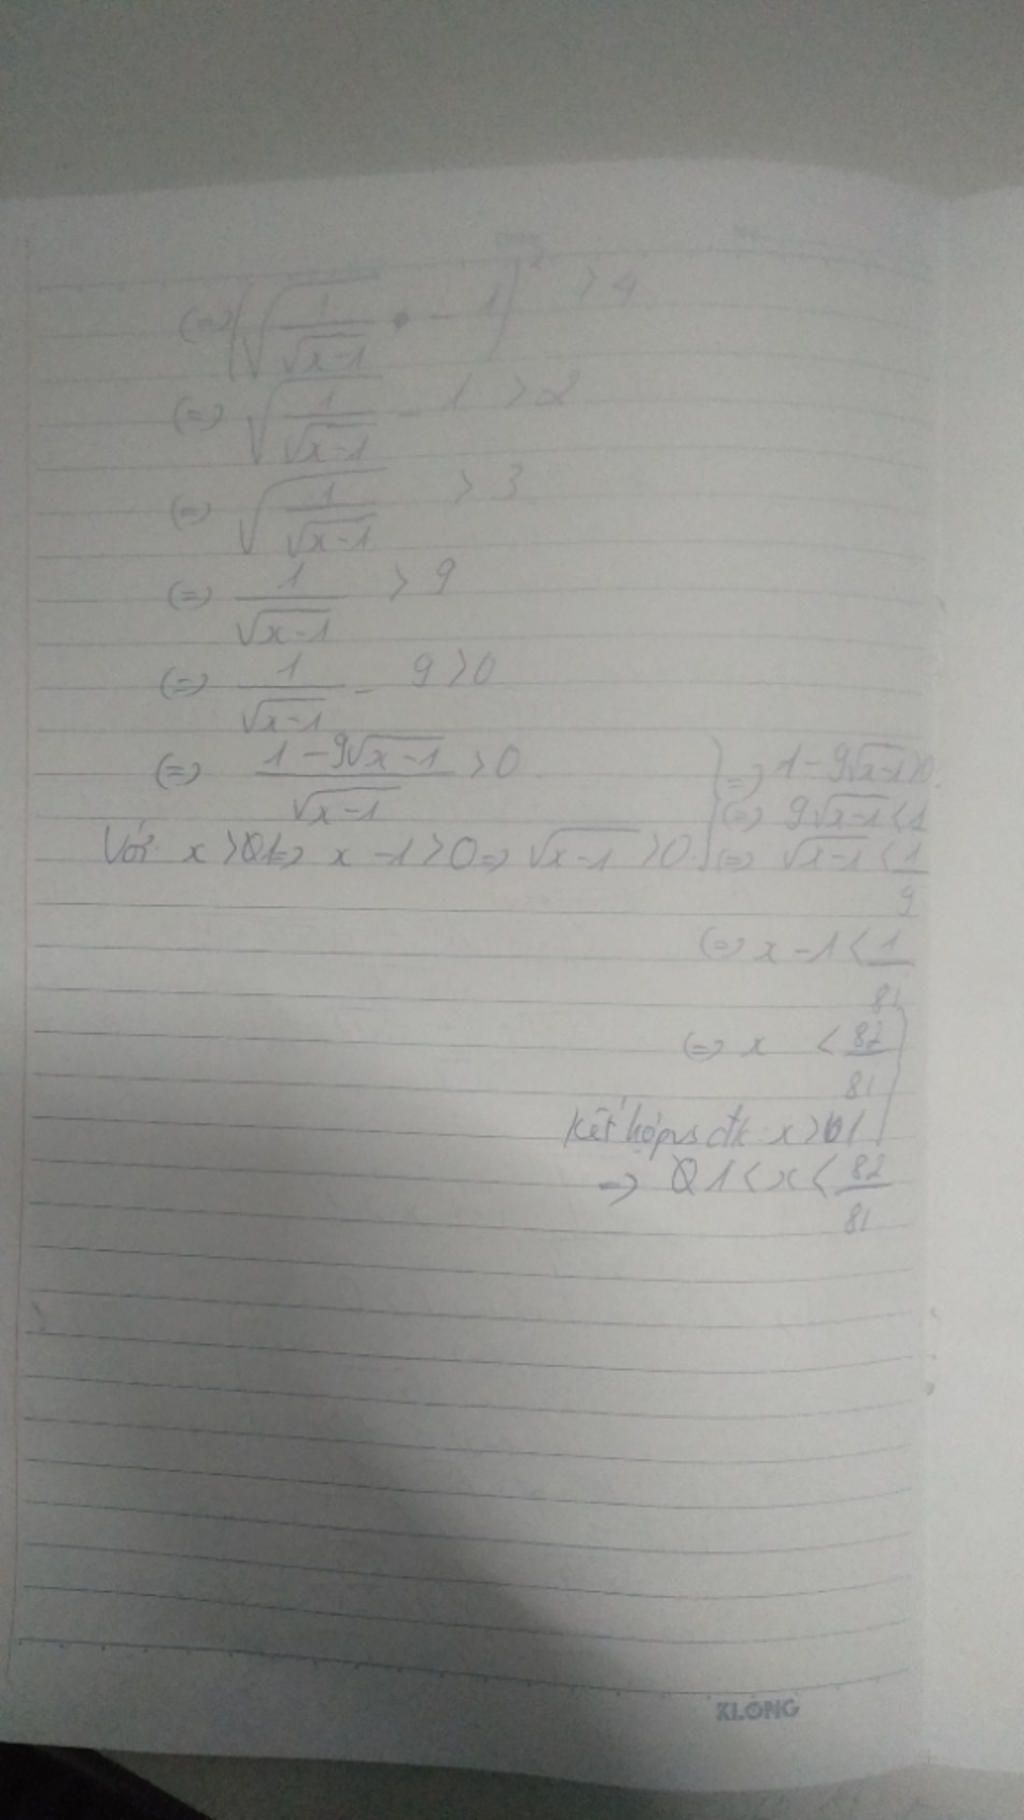 (=) (√(1/√(x-1)) - 1)² > 4
(=) √(1/√(x-1)) - 1 > 2
(=) √(1/√(x-1)) > 3
(=) 1/√(x-1) > 9
(=) 1/√(x-1) - 9 > 0
(=) (1-9√(x-1))/√(x-1) > 0
Với x > 1 => x - 1 > 0 => √(x-1) > 0
=> 1 - 9√(x-1) > 0
(=) 9√(x-1) < 1
(=) √(x-1) < 1/9
(=) x - 1 < 1/81
(=) x < 82/81
Kết hợp vs đk x > 1
=> 1 < x < 82/81
KLONG